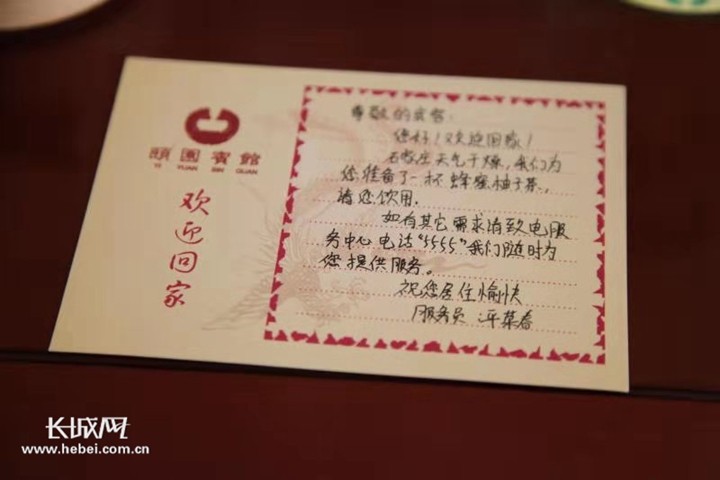 頤園賓館
YI YUAN BIN GUAN
欢迎回家
尊敬的宾客：
您好！欢迎回家！
石家庄天气干燥，我们为
您准备了一杯蜂蜜柚子茶，
请您饮用。
如有其它需求请致电服
务中心电话“5555”我们随时为
您提供服务。
祝您居住愉快
服务员
长城网
www.hebei.com.cn